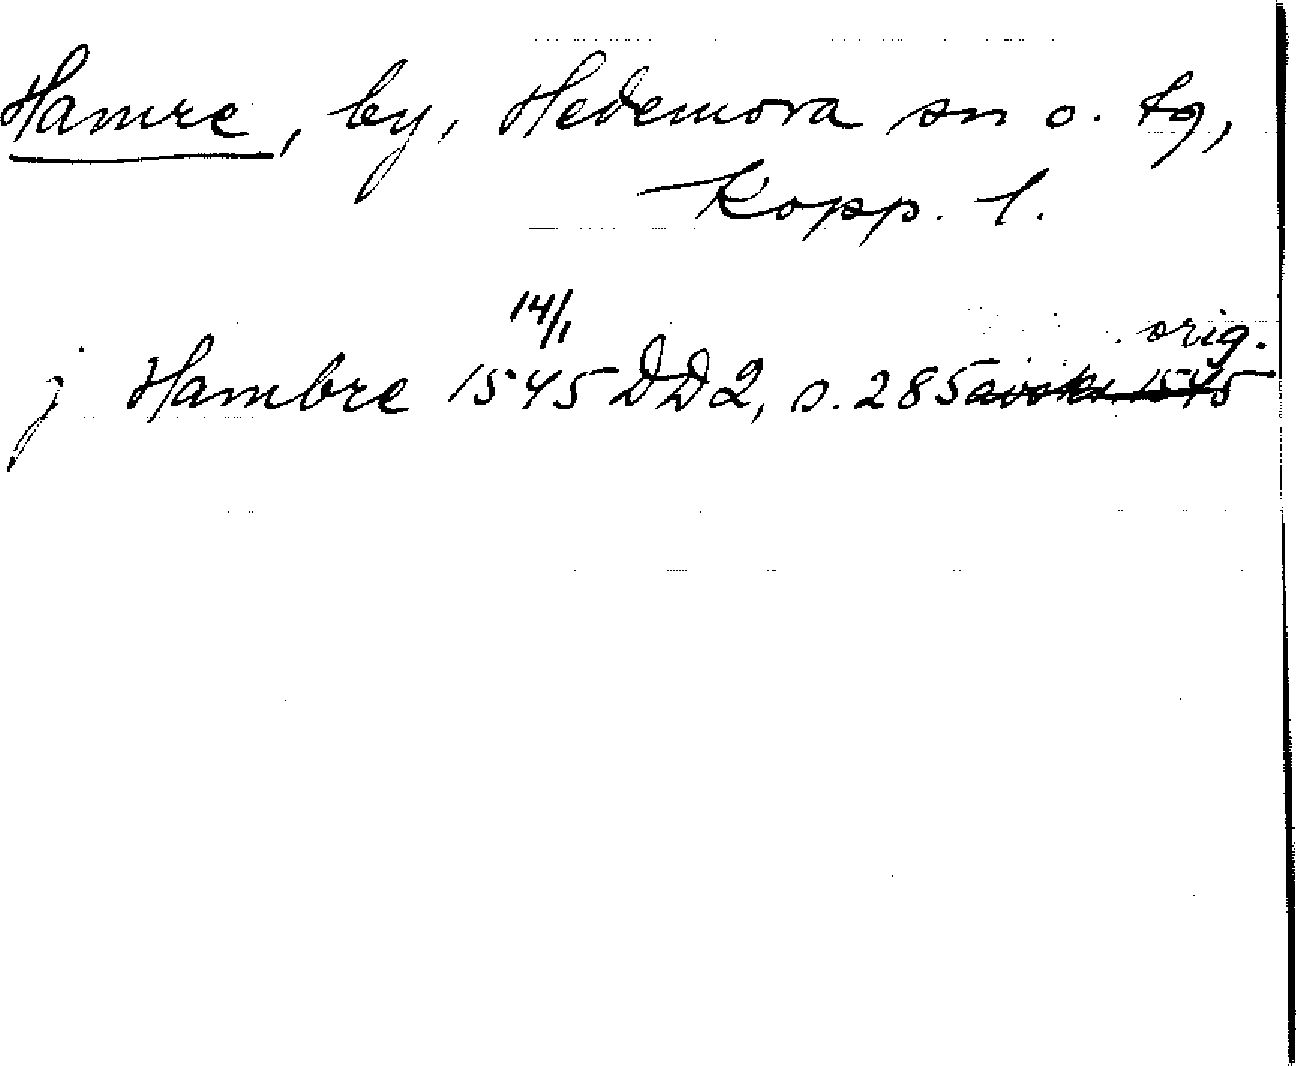 Hamre, by, Hedemora sn o. tg,
Kopp. l.
14/1
orig.
j Hambre 1545 DD2, s. 285 avskr. 1545